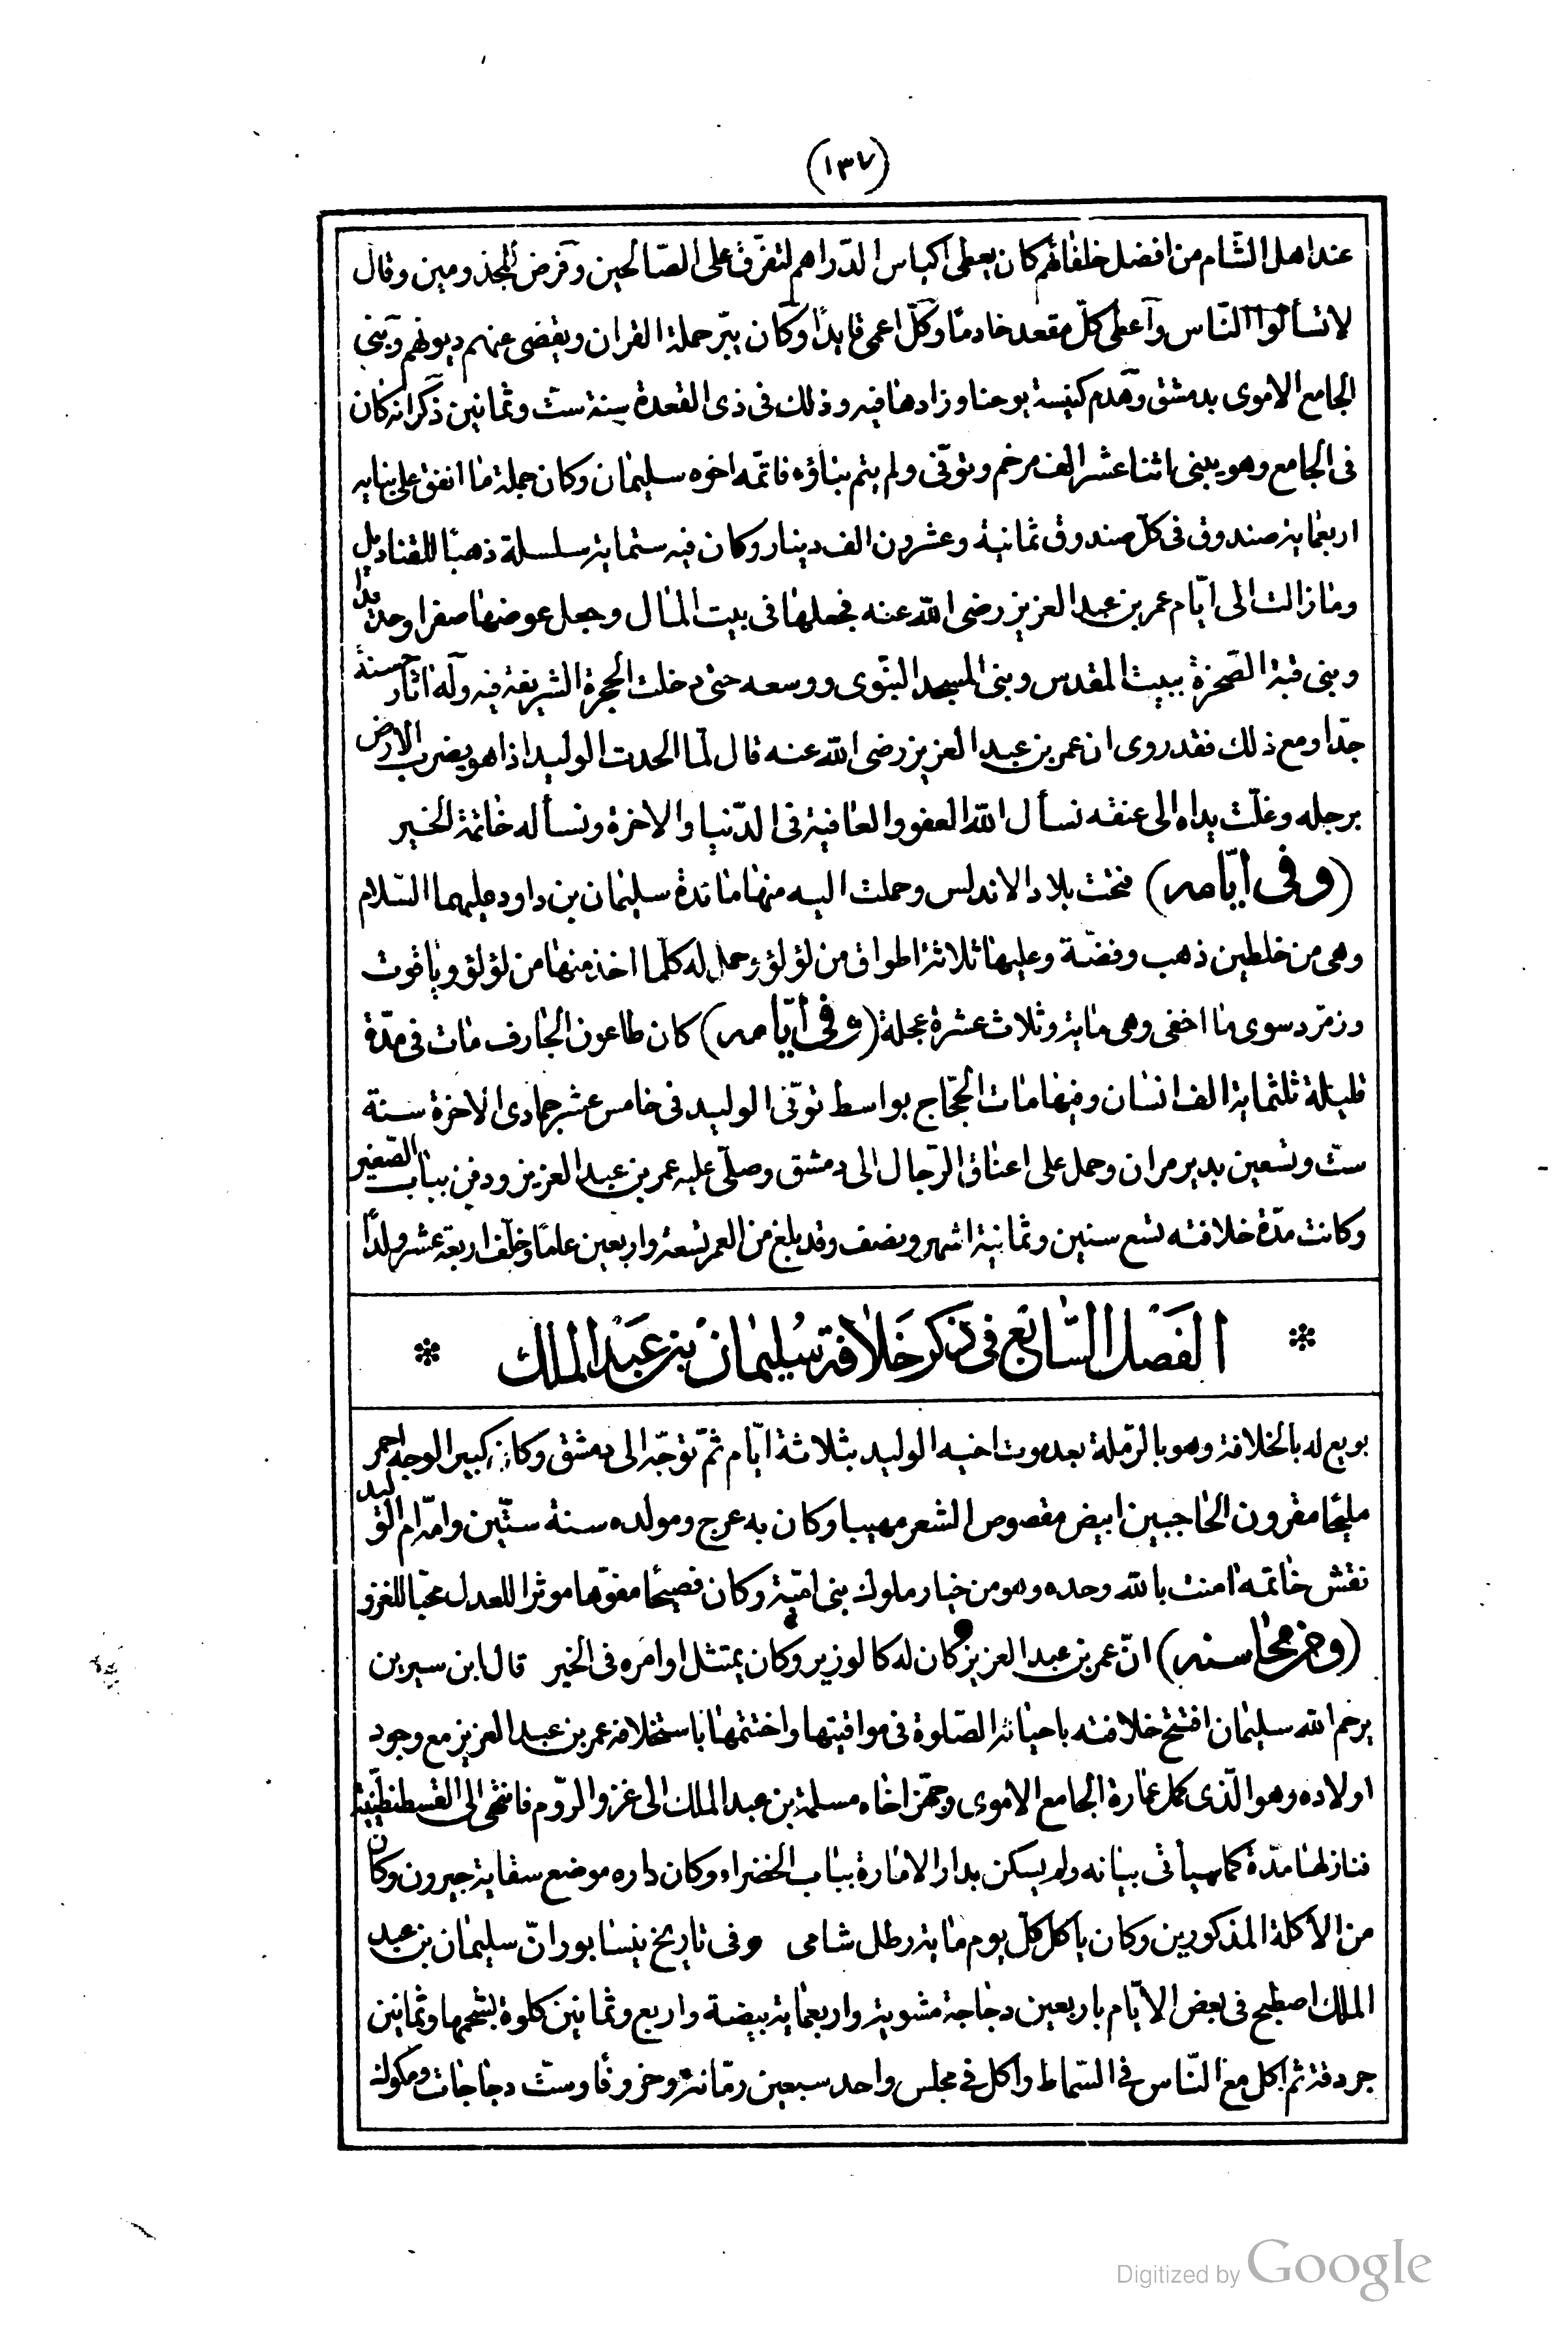 (١٣٧)
عند اهل الشّام من افضل خلفائهم كان يعطى اكياس الدّراهم لتفرّق على الصّالحين وفرض للمجذومين وقال
لا تسألوا النّاس وأعطى كلّ مقعد خادمًا وكلّ اعمى قايدًا وكان يبرّ حملة القران ويقضى عنهم ديونهم وبنى
الجامع الاموى بدمشق وهدم كنيسة يوحنا وزادها فيه وذلك فى ذى القعدة سنة ستّ وثمانين ذكر انه كان
فى الجامع وهو يبنى اثنا عشر الف مرخم وتوفّى ولم يتم بناؤه فاتمّه اخوه سليمان وكان جملة ما انفق على بنايه
اربعماية صندوق فى كلّ صندوق ثمانية وعشرون الف دينار وكان فيه ستماية سلسلة ذهبًا للقناديل
وما زالت الى ايّام عمر بن عبد العزيز رضى اللّه عنه فجعلها فى بيت المال وجعل عوضها صفرا وحديدا
وبنى قبة الصّخرة ببيت المقدس وبنى المسجد النّبوى ووسعه حتى دخلت الحجرة الشريفة فيه وله اثار حسنة
جدّا ومع ذلك فقد روى ان عمر بن عبد العزيز رضى اللّه عنه قال لمّا الحدت الوليد اذا هو يضرب الارض
برجله وغلّت يداه الى عنقه نسأل اللّه العفو والعافية فى الدّنيا والاخرة ونسأله خاتمة الخير
(وفى ايّامه) فتحت بلاد الاندلس وحملت اليه منها مائدة سليمان بن داود عليهما السّلام
وهى من خلطين ذهب وفضّة وعليها ثلاثة اطواق من لؤلؤ وحمل له كلّما اخذ منها من لؤلؤ وياقوت
وزمرّد سوى ما اخفى وهى ماية وثلاث عشرة عجلة (وفى أيّامه) كان طاعون الجارف مات فى مدّة
قليلة ثلثماية الف انسان وفيها مات الحجّاج بواسط توفّى الوليد فى خامس عشر جمادى الاخرة سنة
ستّ وتسعين بدير مران وحمل على اعناق الرّجال الى دمشق وصلّى عليه عمر بن عبد العزيز ودفن بباب الصّغير
وكانت مدّة خلافته تسع سنين وثمانية اشهر ونصف وقد بلغ من العمر تسعة واربعين عامًا وخلّف اربعة عشر ولدًا
* الفصل السّابع فى ذكر خلافة سليمان بن عبد الملك *
بويع له بالخلافة وهو بالرّملة بعد موت اخيه الوليد بثلاثة ايّام ثمّ توجّه الى دمشق وكان كبير الوجه احمر
مليحًا مقرون الحاجبين ابيض مقصوص الشعر مهيبا وكان به عرج ومولده سنة ستّين وامّه ام الوليد
نقش خاتمه امنت باللّه وحده وهو من خيار ملوك بنى اميّة وكان فصيحًا مفوّها موثرا للعدل محبّا للغزو
(ومن محاسنه) انّ عمر بن عبد العزيز كان له كالوزير وكان يمتثل اوامره فى الخير قال ابن سيرين
يرحم اللّه سليمان افتتح خلافته باحيائه الصّلوة فى مواقيتها واختتمها باستخلافه عمر بن عبد العزيز مع وجود
اولاده وهو الّذى كمل عمارة الجامع الاموى وجهّز اخاه مسلمة بن عبد الملك الى غزو الرّوم فانتهى الى القسطنطينيّة
فنازلها مدّة كما سيأتى بيانه ولم يسكن بدار الامارة بباب الخضراء وكان داره موضع سقاية جيرون وكان
من الاكلة المذكورين وكان ياكل كلّ يوم ماية رطل شامى وفى تاريخ نيسابور انّ سليمان بن عبد
الملك اصطبح فى بعض الايّام باربعين دجاجة مشوية واربعماية بيضة واربع وثمانين كلوة بشحمها وثمانين
جردقة ثم اكل مع النّاس فى السّماط واكل فى مجلس واحد سبعين رمّانة وخروفًا وستّ دجاجات ومكولة
Digitized by Google